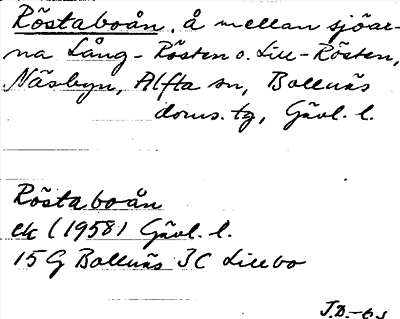 Röstaboån, å mellan sjöar-
na Lång-Rösten o. Lill-Rösten,
Näsbyn, Alfta sn, Bollnäs
doms. tg, Gävl. l.
Röstaboån
ek (1958) Gävl. l.
15 G Bollnäs 3C Lillbo
J.D.-63